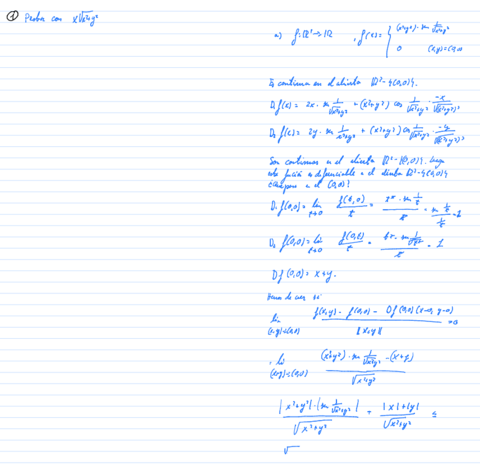 ① Probar con x√x²+y²
a) f: ℝ² → ℝ , f(x) = { (x²+y²) · sen 1/√x²+y²
0 (x,y) = (0,0)
Es continua en el abierto ℝ² - {(0,0)}.
D₁ f(x) = 2x · sen 1/√x²+y² + (x²+y²) cos 1/√x²+y² · -x/(√x²+y²)³
D₂ f(x) = 2y · sen 1/√x²+y² + (x²+y²) cos 1/√x²+y² · -y/(√x²+y²)³
Son continuas en el abierto ℝ² - {(0,0)}, luego
esta función es diferenciable en el abierto ℝ² - {(0,0)}
¿Qué pasa en el (0,0)?
D₁ f(0,0) = lim t→0 f(t,0)/t = t² · sen 1/t / t = sen 1/t / 1/t = 1
D₂ f(0,0) = lim t→0 f(0,t)/t = t² · sen 1/√t² / t = 1
Df (0,0) = x+y.
Hemos de ver si
lim (x,y)→(0,0) f(x,y) - f(0,0) - Df(0,0)(x-0, y-0) / ‖x+y‖ = 0
· lim (x,y)→(0,0) (x²+y²) · sen 1/√x²+y² - (x+y) / √x²+y²
|x²+y²| · |sen 1/√x²+y²| / √x²+y² = |x|+|y| / √x²+y² ≤
√